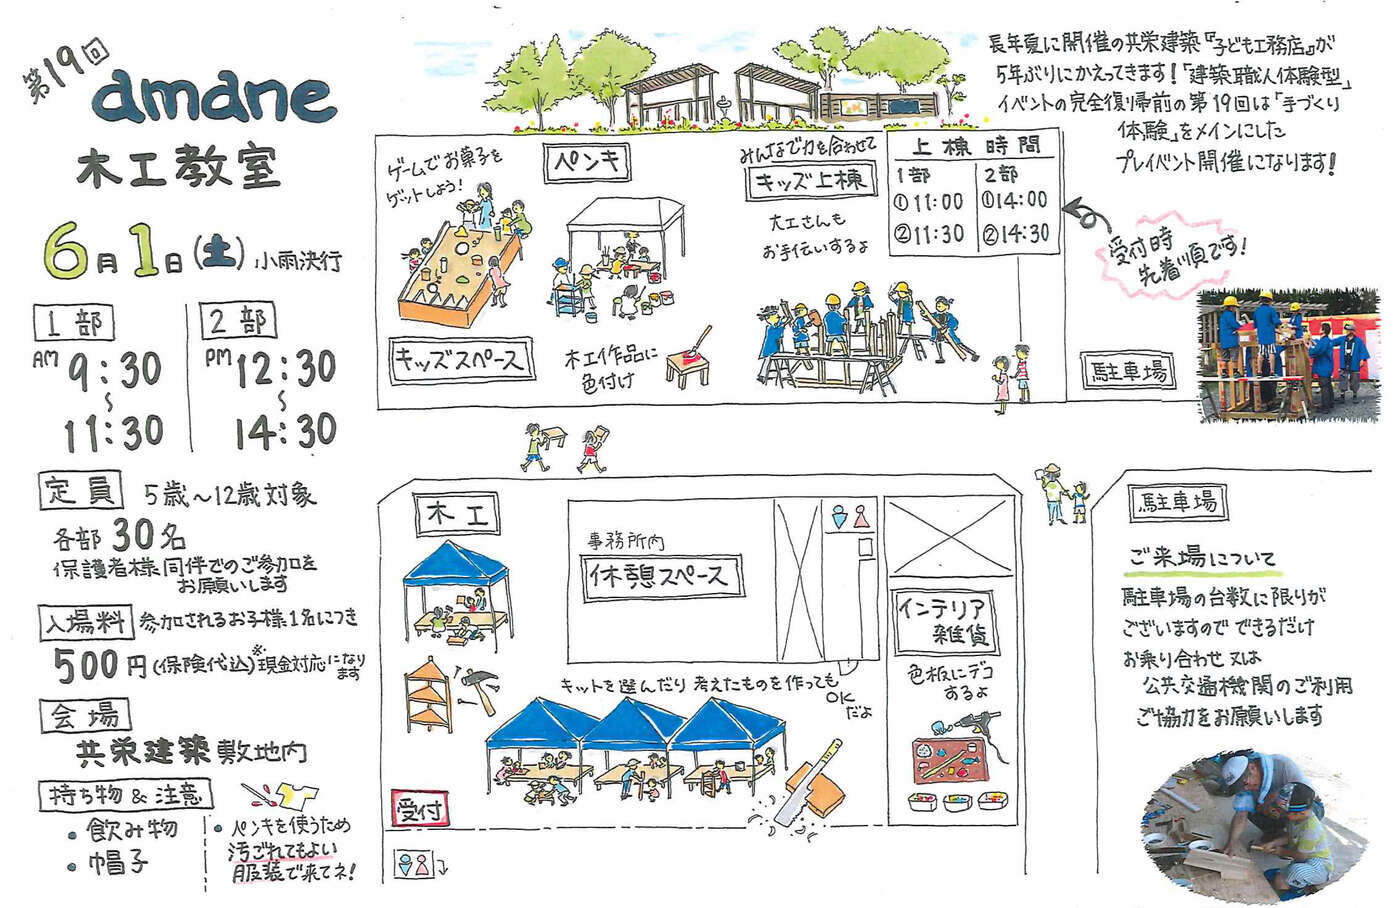 第19回
amane
木工教室
6月1日(土) 小雨決行
1部
AM 9:30
~
11:30
2部
PM 12:30
~
14:30
定員 5歳~12歳対象
各部30名
保護者様同伴でのご参加を
お願いします
入場料 参加されるお子様1名につき
500円(保険代込)※現金対応になり
ます
会場
共栄建築敷地内
持ち物&注意
・飲み物
・帽子
・ペンキを使うため
汚ごれてもよい
服装で来てネ!
長年夏に開催の共栄建築『子ども工務店』が
5年ぶりにかえってきます!「建築職人体験型」
イベントの完全復帰前の第19回は「手づくり
体験」をメインにした
プレイベント開催になります!
ゲームでお菓子を
ゲットしよう!
キッズスペース
ペンキ
木工作品に
色付け
みんなで力を合わせて
キッズ上棟
大工さんも
お手伝いするよ
上棟時間
1部
①11:00
②11:30
2部
①14:00
②14:30
受付時
先着順です!
駐車場
木工
事務所内
休憩スペース
キットを選んだり考えたものを作っても
OK
だよ
インテリア
雑貨
色板にデコ
するよ
受付
駐車場
ご来場について
駐車場の台数に限りが
ございますので できるだけ
お乗り合わせ又は
公共交通機関のご利用
ご協力をお願いします